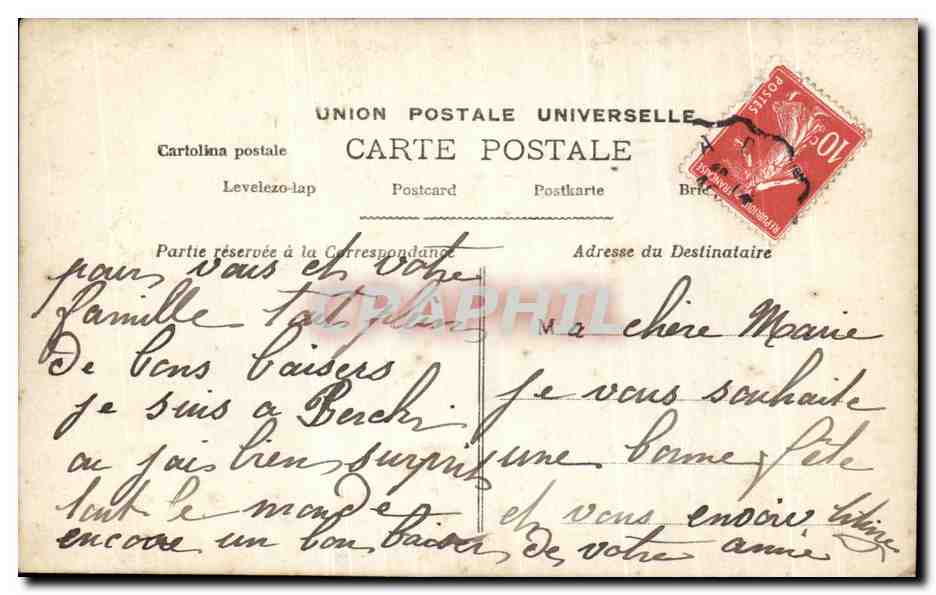 UNION POSTALE UNIVERSELLE
CARTE POSTALE
Cartolina postale
Levelezo-lap Postcard Postkarte
10c
POSTES
REPUBLIQUE FRANÇAISE
Partie réservée à la Correspondance
Adresse du Destinataire
CPAPHIL
Ma chère Marie
je vous souhaite
une bonne fête
et vous envoie
pour vous et votre
famille tout plein
de bons baisers
je suis a
ou jai bien surpris
tout le monde
encore un bon baiser de votre amie